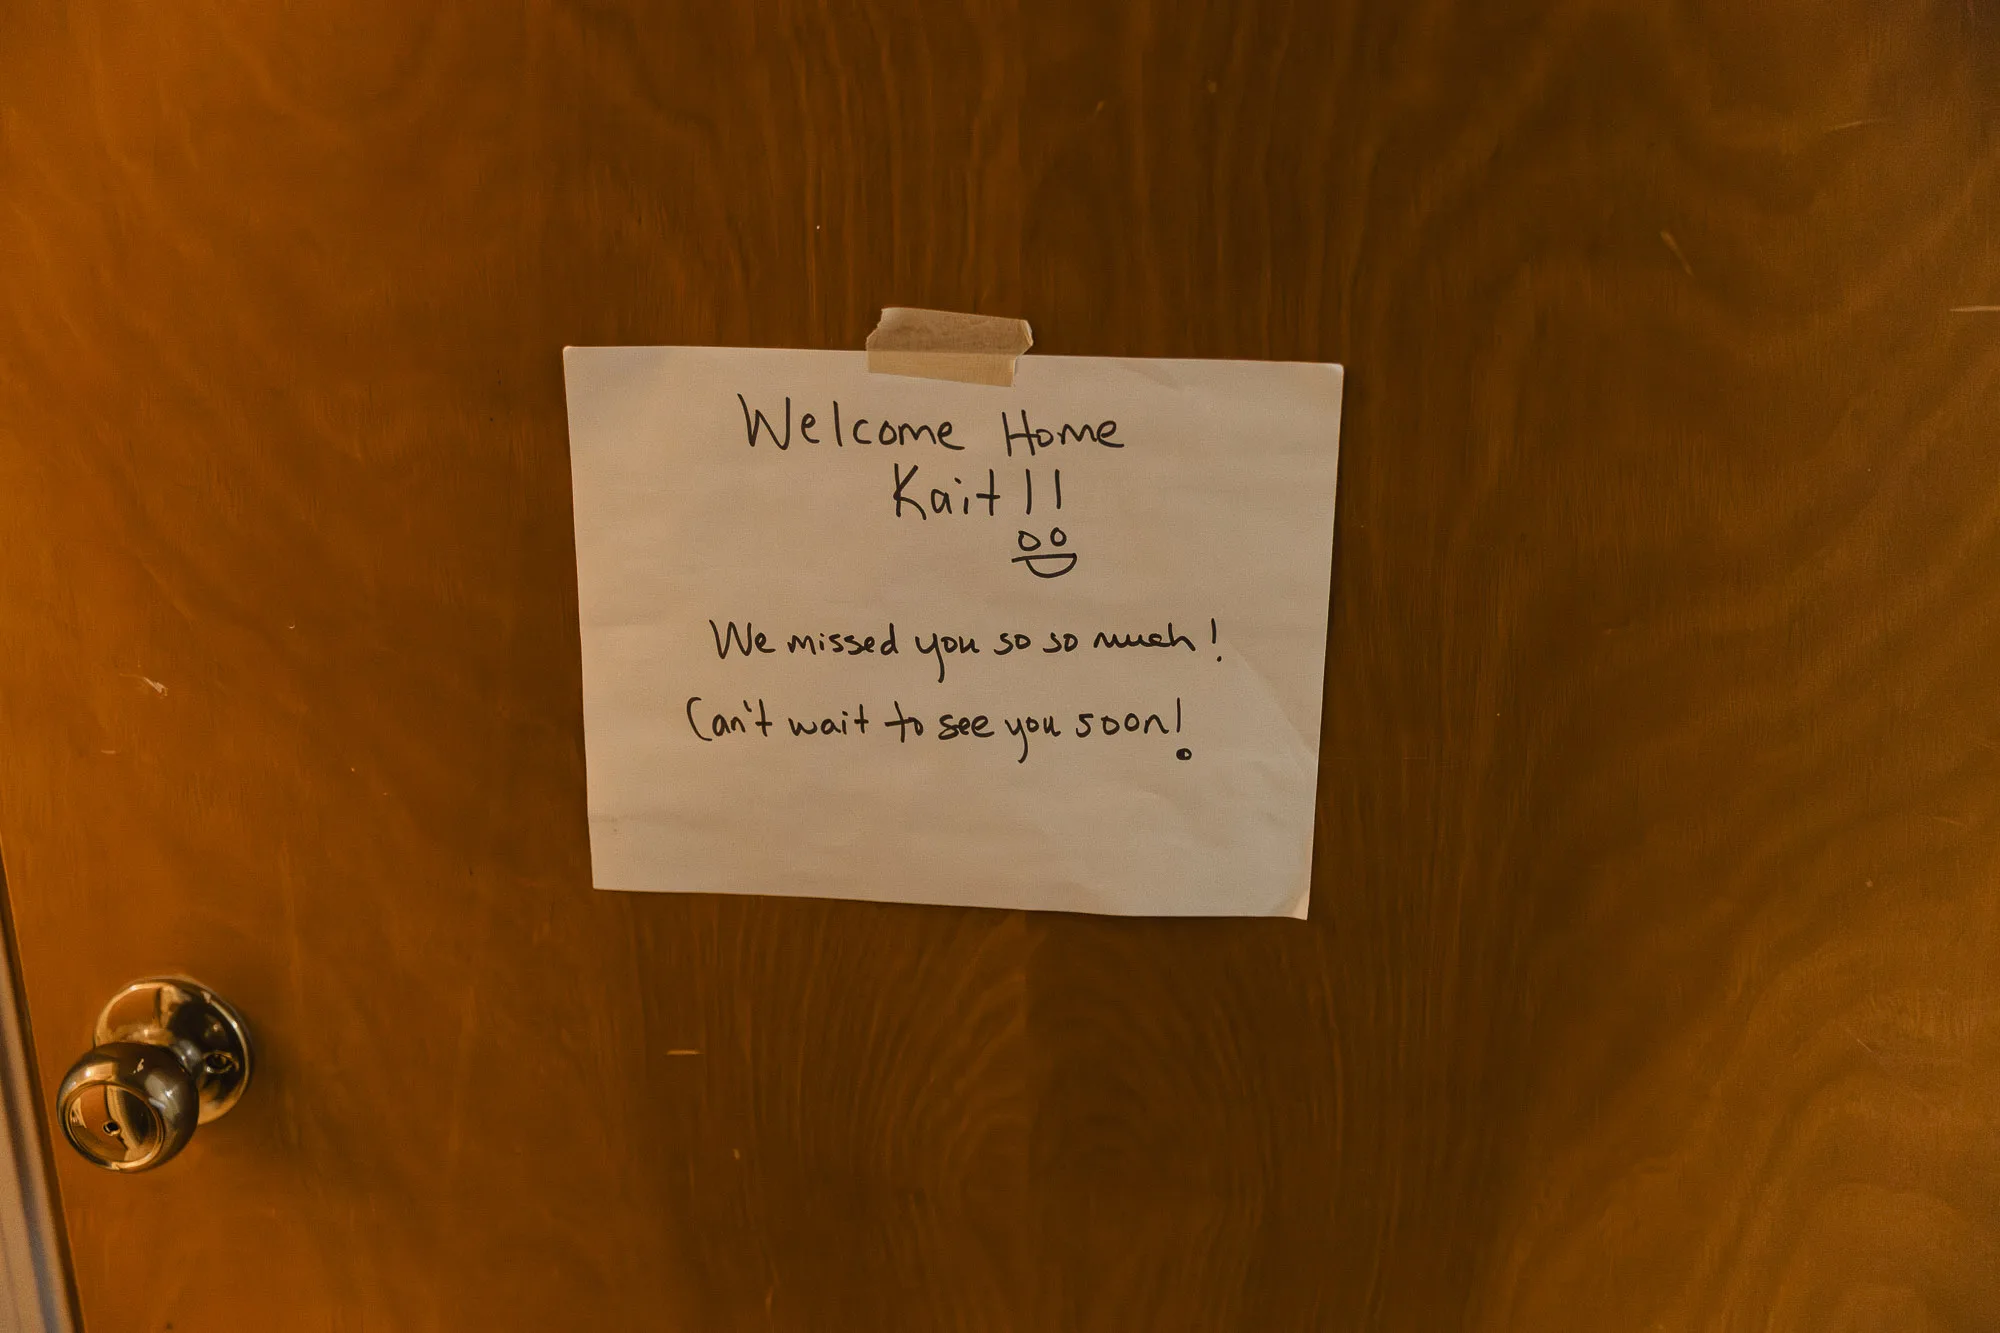 Welcome Home
Kait!!
We missed you so so much!
Can't wait to see you soon!